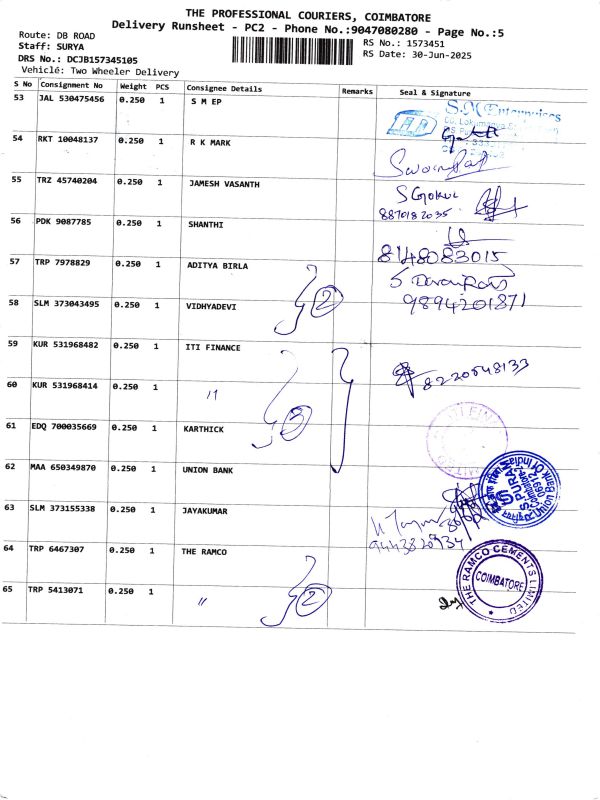 THE PROFESSIONAL COURIERS, COIMBATORE
Delivery Runsheet - PC2 - Phone No.:9047080280 - Page No.:5
Route: DB ROAD
Staff: SURYA
DRS No.: DCJB157345105
Vehicle: Two Wheeler Delivery
RS No.: 1573451
RS Date: 30-Jun-2025
S No Consignment No Weight PCS Consignee Details Remarks Seal & Signature
53 JAL 530475456 0.250 1 S M EP
S.M Enterprises
54 RKT 10048137 0.250 1 R K MARK
55 TRZ 45740204 0.250 1 JAMESH VASANTH
S Gokul
8870182035
56 PDK 9087785 0.250 1 SHANTHI
8148083015
57 TRP 7978829 0.250 1 ADITYA BIRLA
2
58 SLM 373043495 0.250 1 VIDHYADEVI
9894201871
59 KUR 531968482 0.250 1 ITI FINANCE
60 KUR 531968414 0.250 1 "
3
61 EDQ 700035669 0.250 1 KARTHICK
62 MAA 650349870 0.250 1 UNION BANK
Union Bank Of India
63 SLM 373155338 0.250 1 JAYAKUMAR
9443820934
64 TRP 6467307 0.250 1 THE RAMCO
THE RAMCO CEMENTS LIMITED
COIMBATORE
65 TRP 5413071 0.250 1 "
2